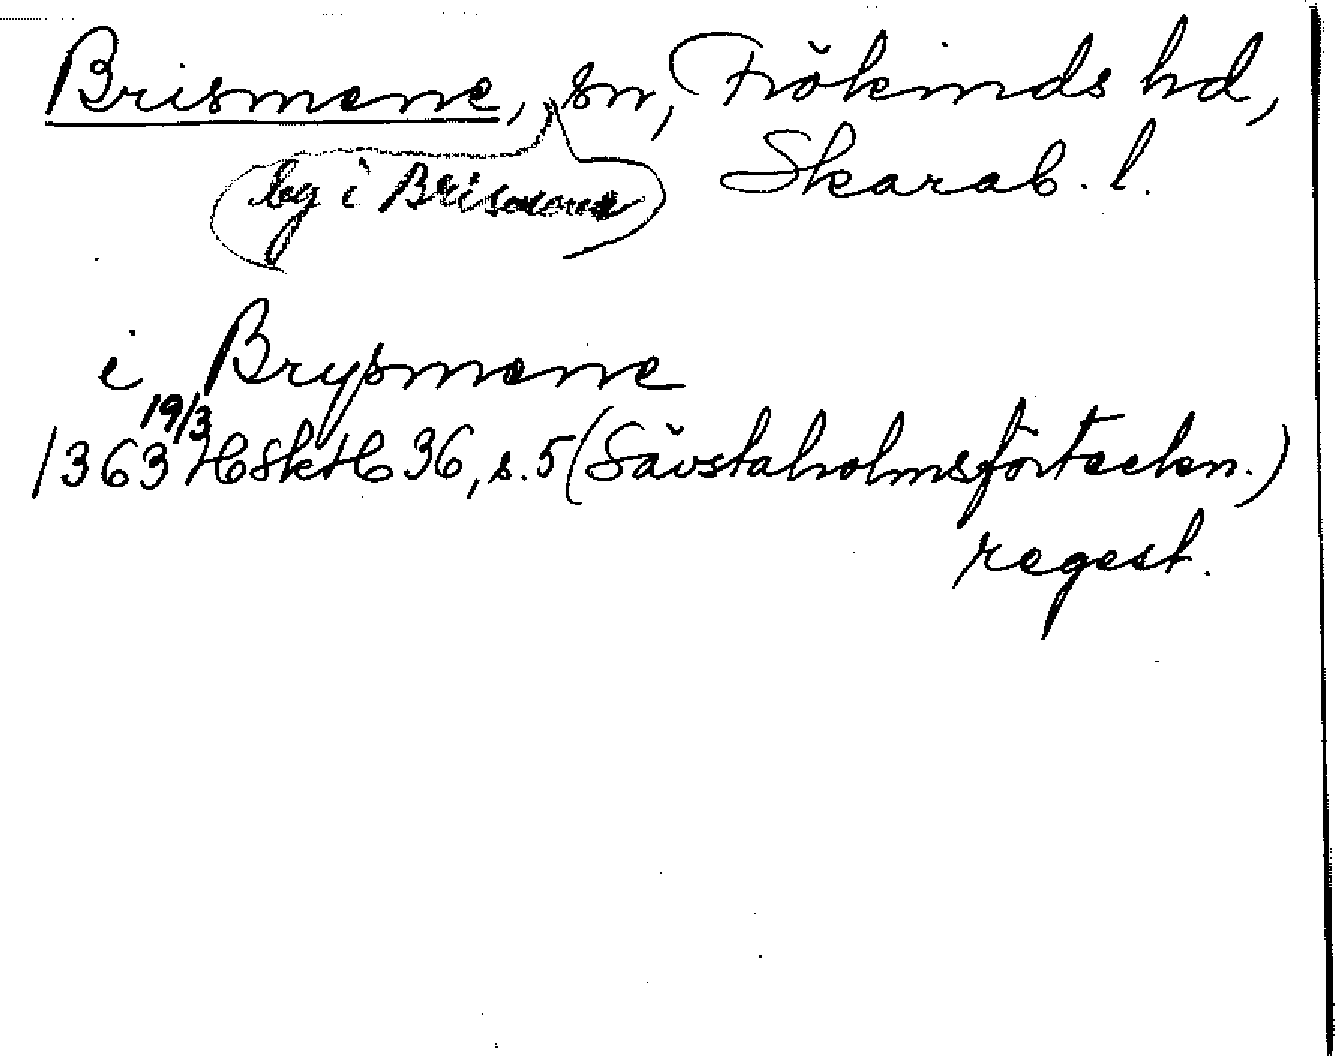 Brismene, sn, Frökinds hd,
by i Brismene
Skarab. l.
i Brysmene
19/3
1363 HSkH 36, s. 5 (Sävstaholmsförteckn.)
regest.